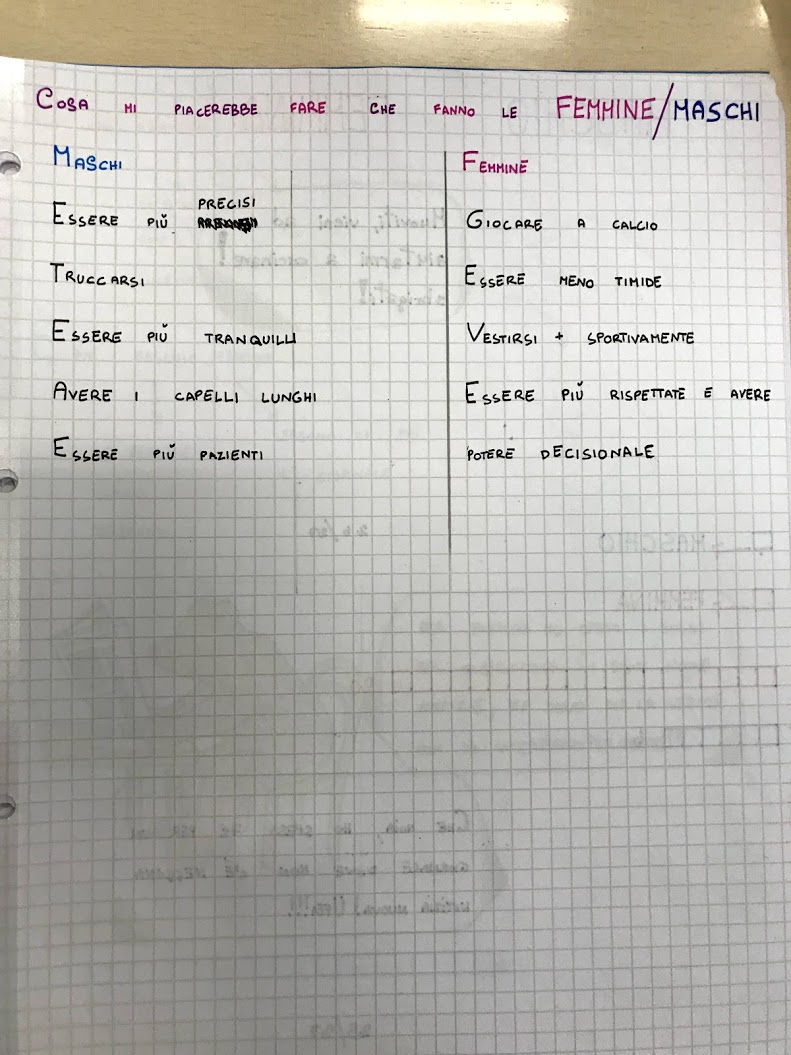 COSA MI PIACEREBBE FARE CHE FANNO LE FEMMINE/MASCHI
MASCHI
ESSERE PIÙ PRECISI
TRUCCARSI
ESSERE PIÙ TRANQUILLI
AVERE I CAPELLI LUNGHI
ESSERE PIÙ PAZIENTI
FEMMINE
GIOCARE A CALCIO
ESSERE MENO TIMIDE
VESTIRSI + SPORTIVAMENTE
ESSERE PIÙ RISPETTATE E AVERE
POTERE DECISIONALE